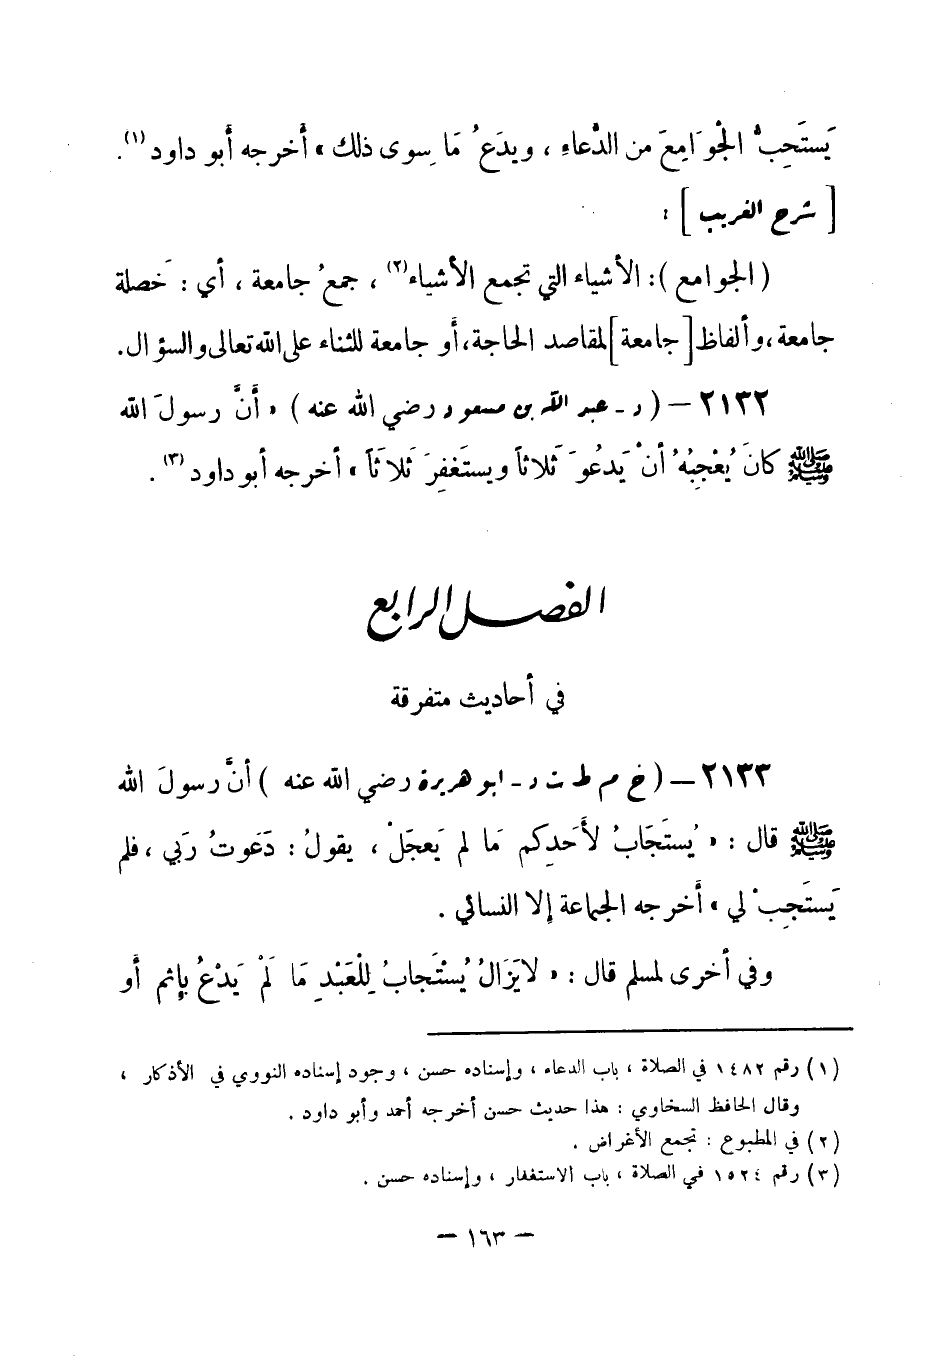 يَستَحِبُّ الجْوَامِعَ من الدُّعاءِ ، ويدَعُ مَا سِوى ذلك » أخرجه أبو داود (١) .
[ شرح الغريب ] :
( الجوامع ) : الأشياء التي تجمع الأشياء (٢) ، جمعُ جامعة ، أي : خَصلة
جامعة ، وألفاظ [ جامعة ] لمقاصد الحاجة ، أو جامعة للثناء على الله تعالى والسؤال .
٢١٣٢ – ( د - عبد الله بن مسعود رضي الله عنه ) « أنَّ رسولَ الله
ﷺ كانَ يُعْجِبُهُ أنْ يَدعُوَ ثَلاثاً ويستَغفِرَ ثَلاثَاً » أخرجه أبو داود (٣) .
الفصل الرابع
في أحاديث متفرقة
٢١٣٣ – ( خ م ط ت د - ابو هريرة رضي الله عنه ) أنَّ رسولَ الله
ﷺ قال : « يُستَجَابُ لأَحَدِكم مَا لم يَعجَلْ ، يقولُ : دَعَوتُ رَبي ، فلم
يَستَجِبْ لي » أخرجه الجماعة إلا النسائي .
وفي أخرى لمسلم قال : « لا يَزَالُ يُسْتَجابُ لِلْعَبْدِ مَا لَمْ يَدْعُ بِإثم أو
(١) رقم ١٤٨٢ في الصلاة ، باب الدعاء ، وإسناده حسن ، وجود إسناده النووي في الأذكار ،
وقال الحافظ السخاوي : هذا حديث حسن أخرجه أحمد وأبو داود .
(٢) في المطبوع : تجمع الأغراض .
(٣) رقم ١٥٢٤ في الصلاة ، باب الاستغفار ، وإسناده حسن .
– ١٦٣ –